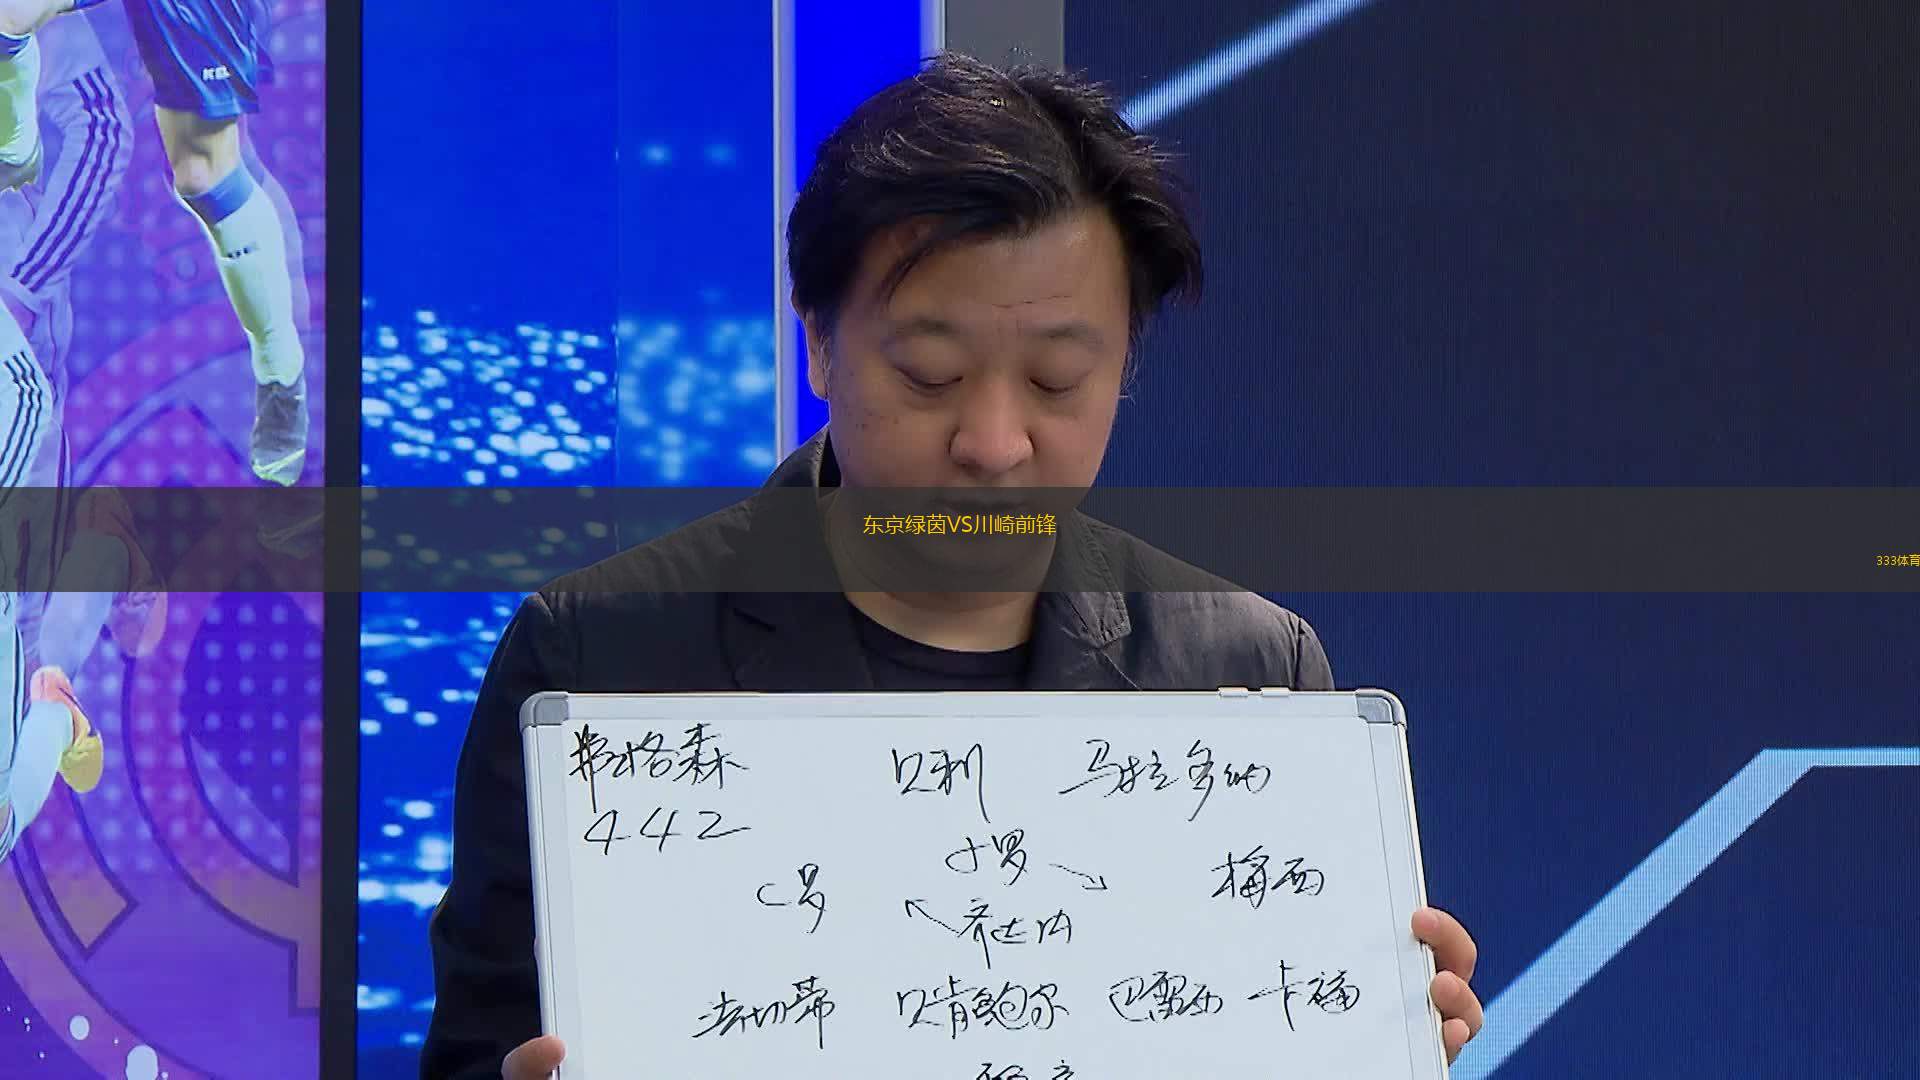 东京绿茵VS川崎前锋
333体育
弗格森 贝利 马拉多纳
442
小罗
C罗 梅西
齐达内
法切蒂 贝肯鲍尔 巴雷西 卡福